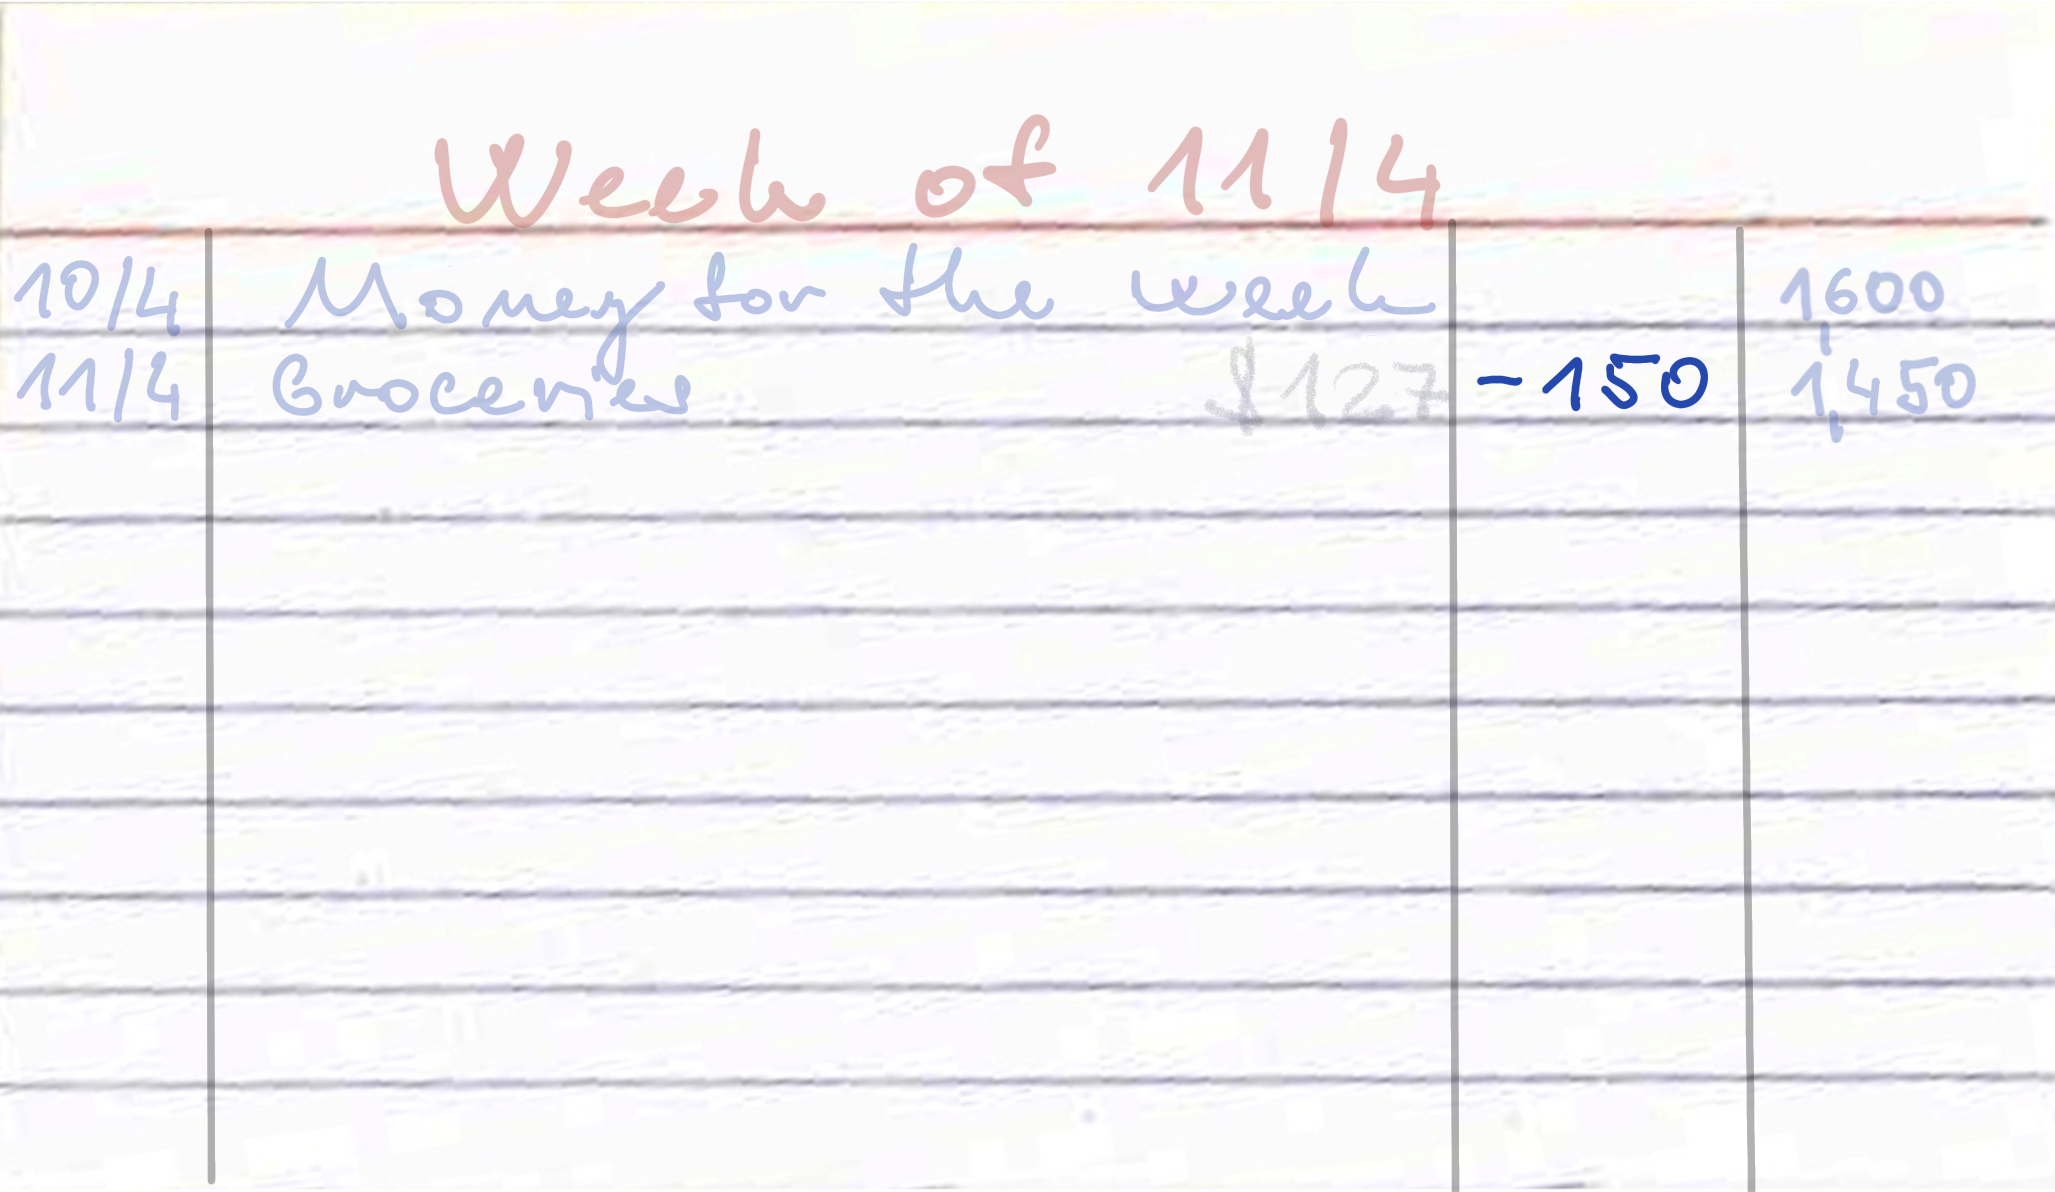 Week of 11/4
10/4 Money for the week 1,600
11/4 Groceries $127 -150 1,450